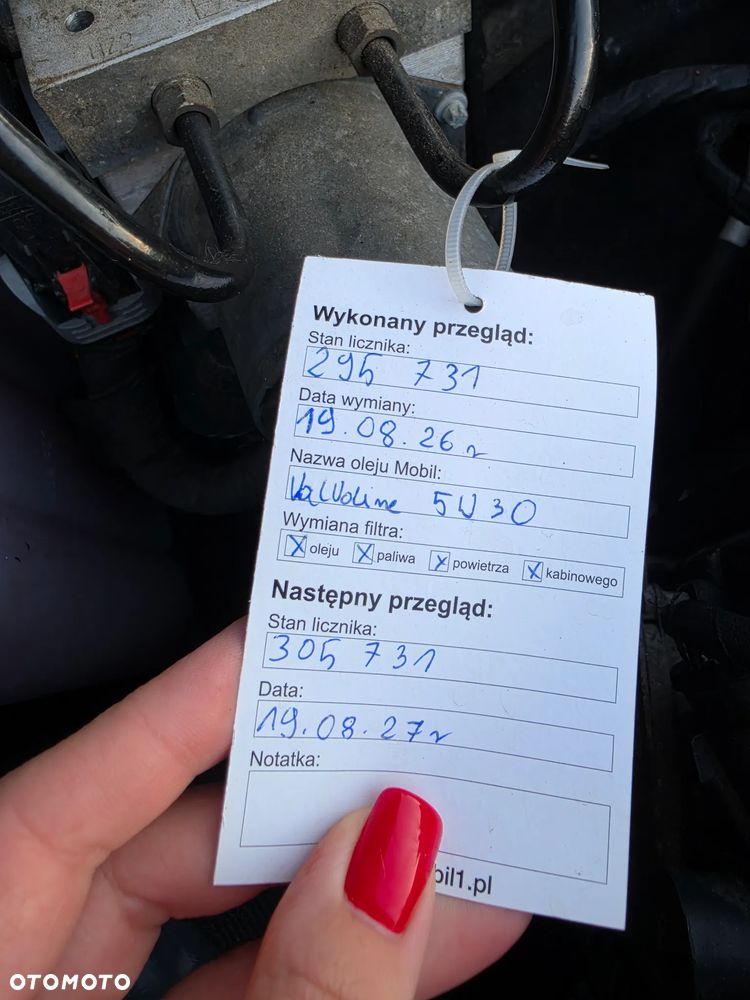 Wykonany przegląd:
Stan licznika:
295 731
Data wymiany:
19.08.26r
Nazwa oleju Mobil:
Valvoline 5W30
Wymiana filtra:
X oleju X paliwa X powietrza X kabinowego
Następny przegląd:
Stan licznika:
305 731
Data:
19.08.27r
Notatka:
bil1.pl
OTOMOTO